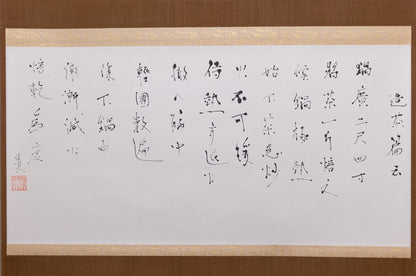 造茶篇云
鍋廣二尺四寸
將茶一斤焙之
候鍋極熱
始下茶急炒
火不可緩
待熱方退火
徹入篩中
輕團數遍
復下鍋中
漸漸減火
焙乾為度